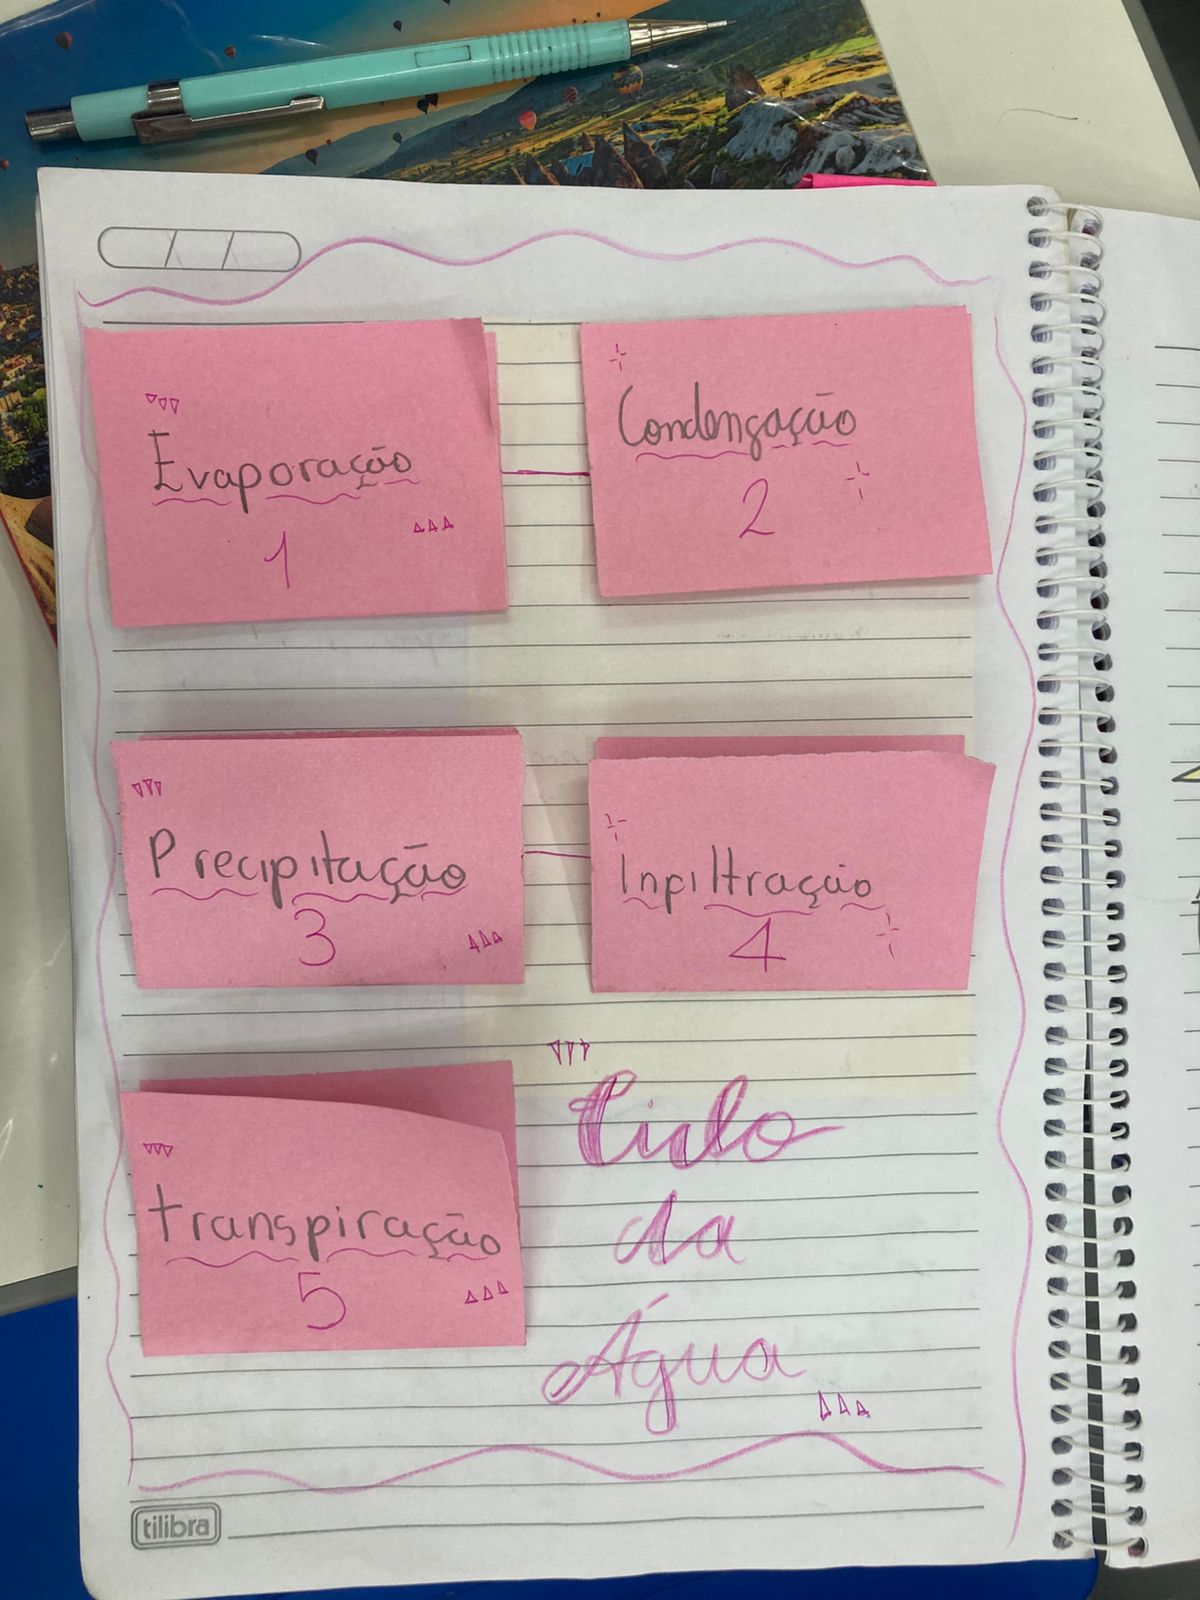 Evaporação
1
Condenzação
2
Precipitação
3
Infiltração
4
transpiração
5
Ciclo
da
Água
tilibra